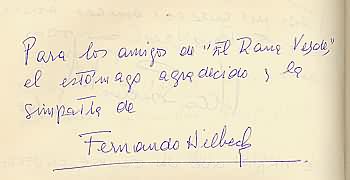 Para los amigos de "El Rana Verde",
el estómago agradecido y la
simpatía de
Fernando Hilbeck